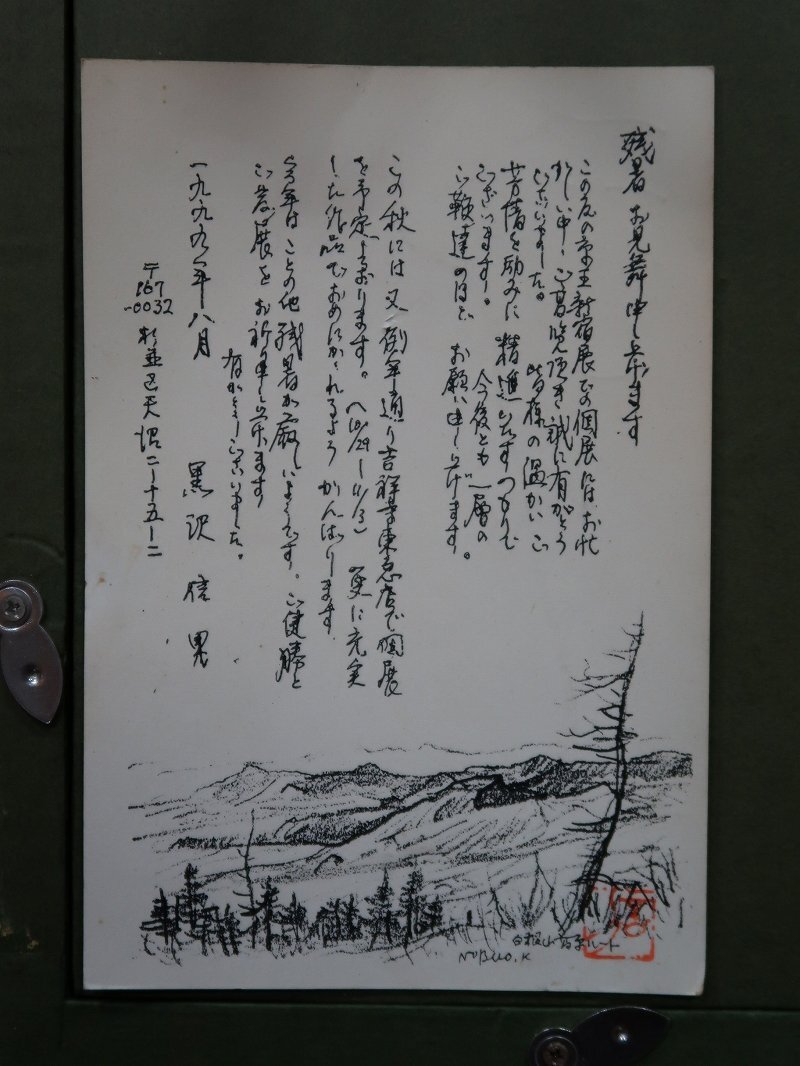 残暑お見舞申し上げます
この度の京王新宿展での個展にはお忙
がしい中、ご高覧頂き誠に有がとう
ございました。皆様の温かいご
芳情を励みに精進いたすつもりで
ございます。今後とも一層の
ご鞭達のほどお願い申し上げます。
この秋には又、例年通り吉祥寺東急店で個展
を予定しております。(10/29~11/3)更に充実
した作品でおめにかゝれるようがんばります。
今年はことの他残暑が厳しいようです。ご健勝と
ご発展をお祈り申し上げます
有がとうございました。
一九九九年八月
黒沢信男
〒167-0032
杉並区天沼二ー十五ー二
白根山 ルート
NOBUO.K